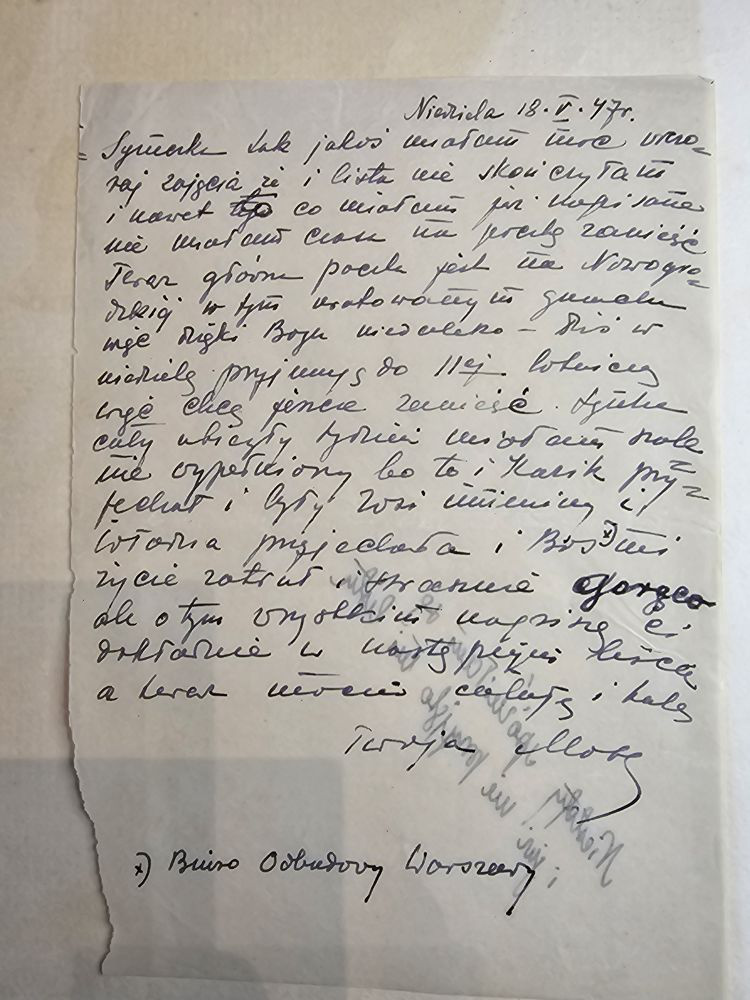 Niedziela 18.V.47r.
Syneczku tak jakoś miałam moc wczo=
raj zajęcia że i listu nie skończyłam
i nawet tego co miałam już napisane
nie miałam czasu na pocztę zanieść
Teraz główna poczta jest na Nowogro=
dzkiej w tym uratowanym gmachu
więc dzięki Bogu niedaleko – dziś w
niedzielę przyjmują do 11ej lotniczą
więc chcę jeszcze zanieść.
cały ubiegły tydzień miałam
nie wypełniony bo to i Kazik przy=
jechał i były Zosi imieniny i
przyjechała i Bos x) mi
życie zatruł i strasznie gorąco
ale o tym wszystkim napiszę Ci
dokładnie w następnym liście
a teraz mocno całuję i tulę
Twoja
x) Biuro Odbudowy Warszawy